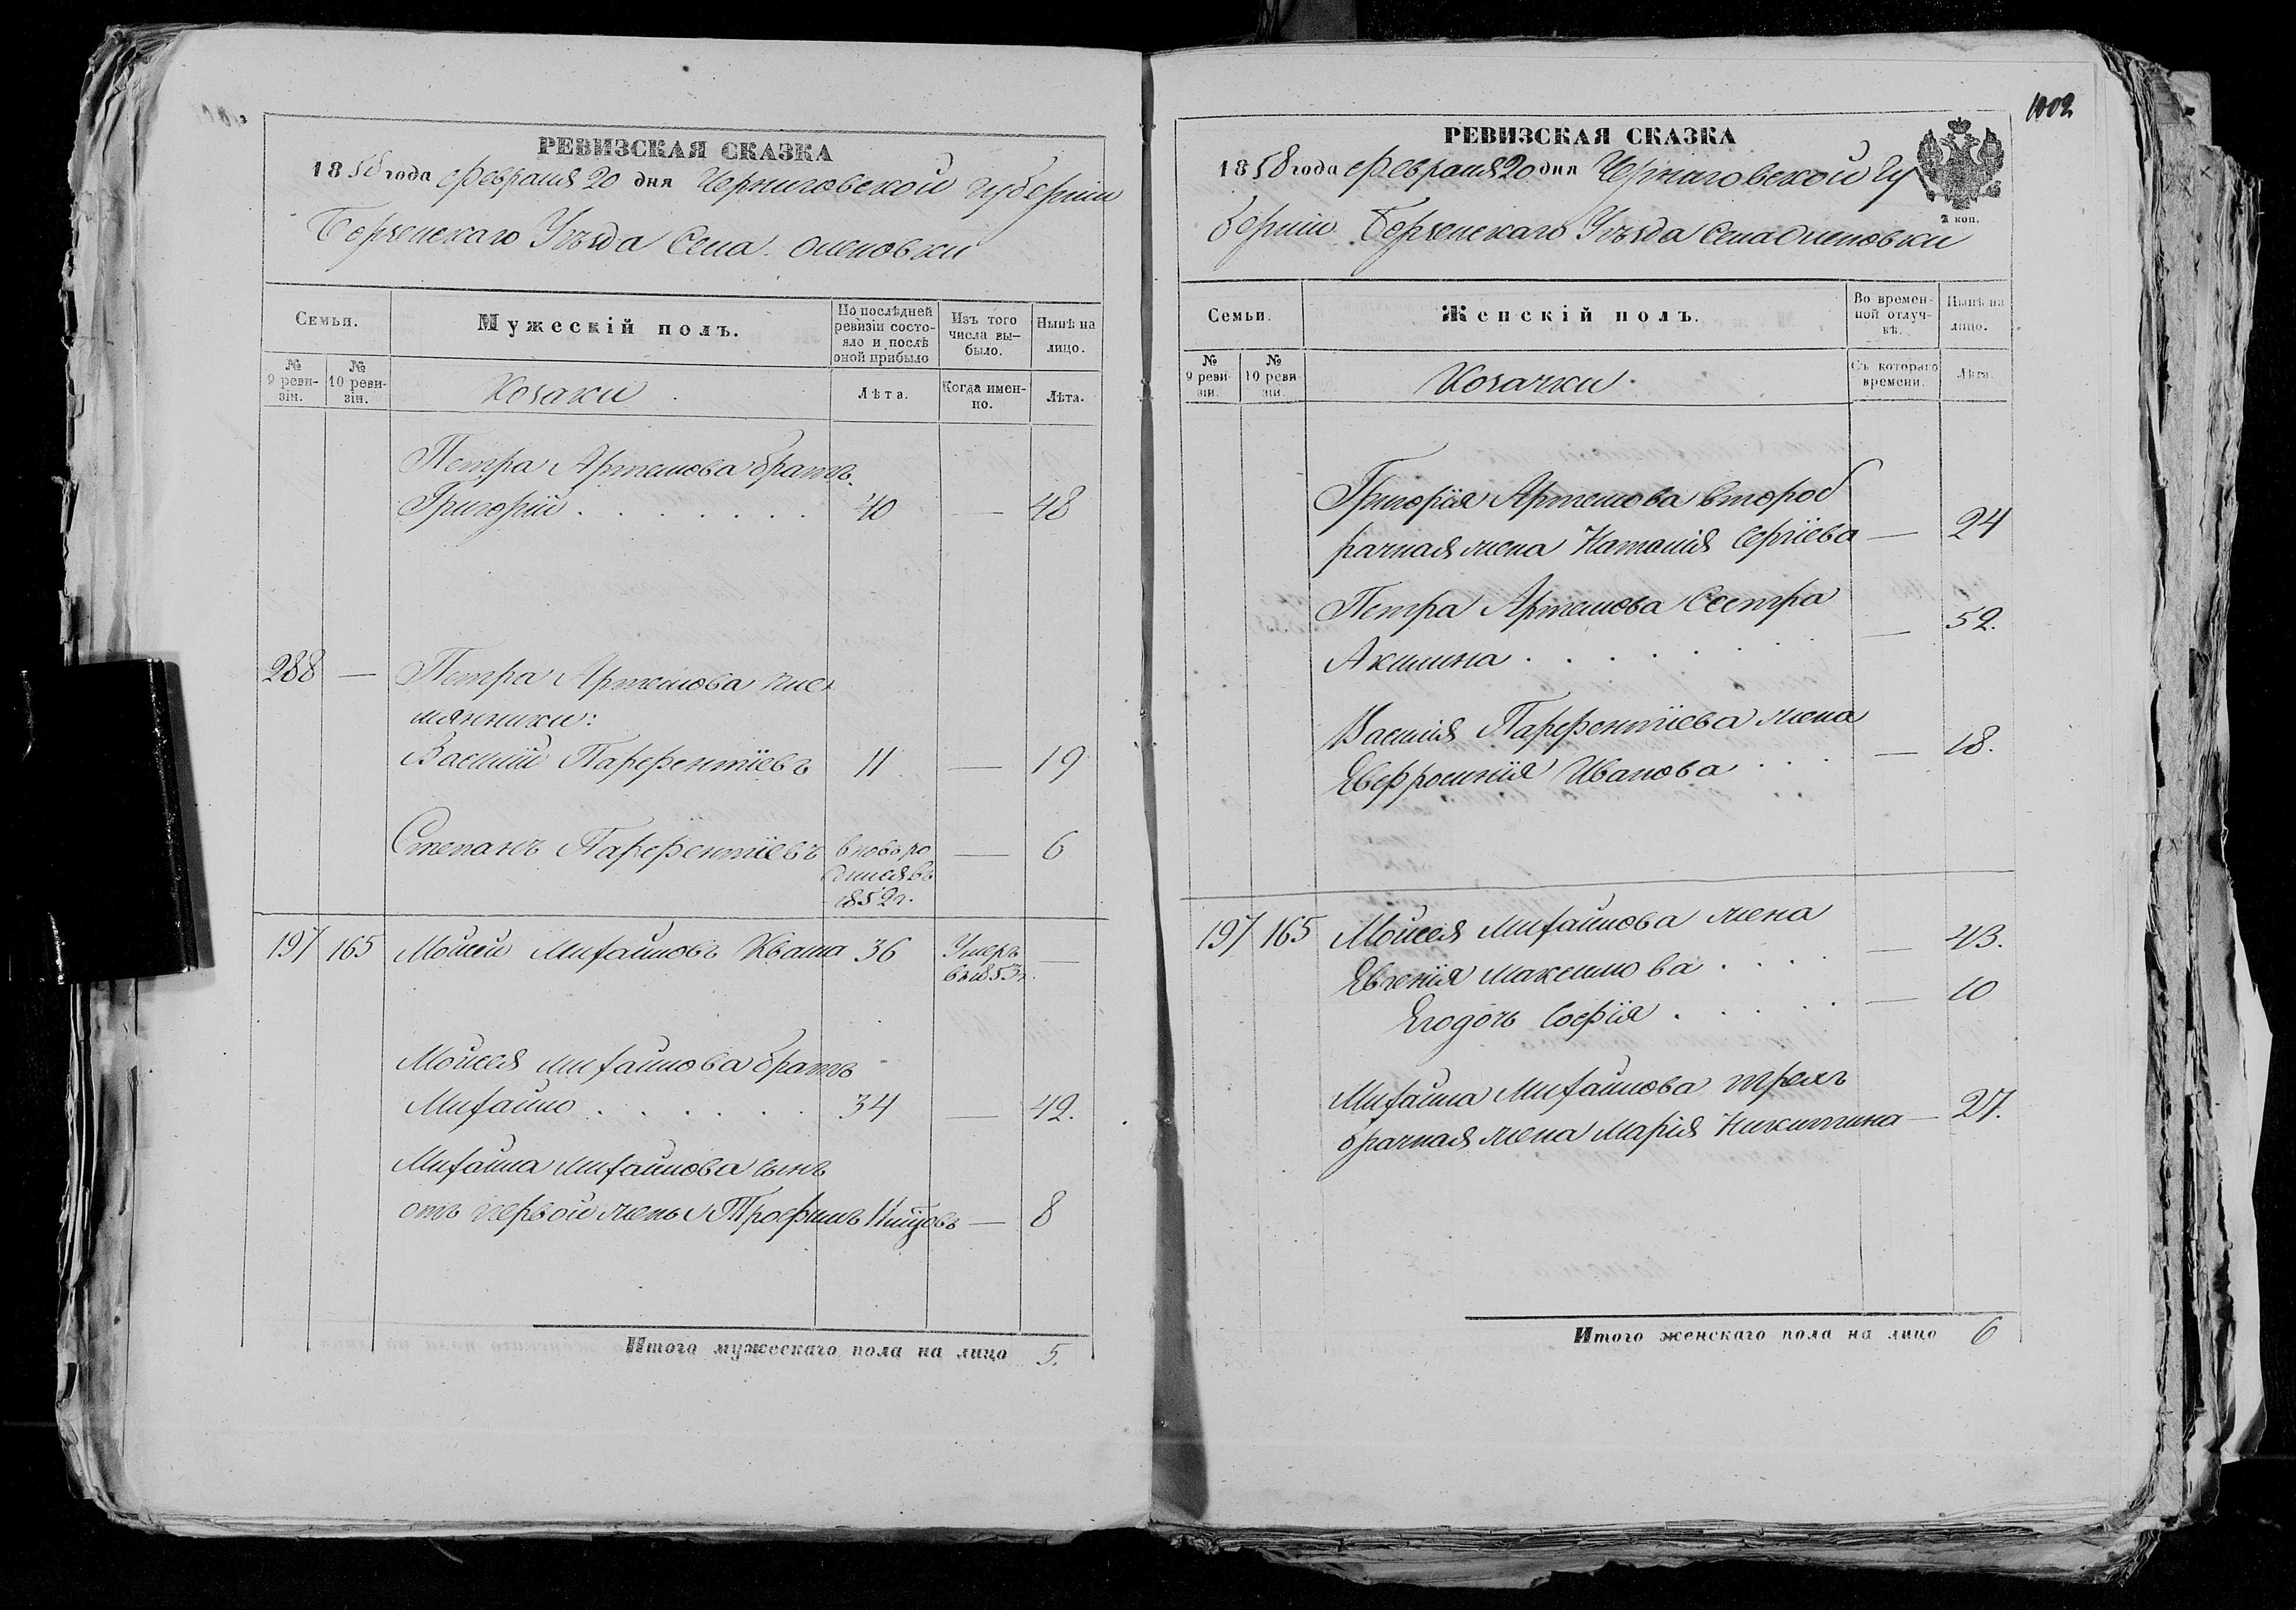 РЕВИЗСКАЯ СКАЗКА
1858 года февраля 20 дня Черниговской губерніи
Борзенскаго Уѣзда Села Оленовки
Семьи.
Мужескій полъ.
По послѣдней ревизіи состояло и послѣ оной прибыло
Изъ того числа выбыло.
Нынѣ на лицо.
№ 9 ревизіи.
№ 10 ревизіи.
Козаки
Лѣта.
Когда именно.
Лѣта.
Петра Артемова братъ
Григорій . . . . . . . 40 — 48
288 — Петра Артемова пле
мянники:
Василій Парфентіевъ 11 — 19
Степанъ Парфентіевъ вновь ро — 6
дился въ
1852 г.
197 165 Мойсей Михайловъ Кваша 36 Умеръ —
въ 1853 г.
Мойсея Михайлова братъ
Михайло . . . . . . 34 — 42.
Михайла Михайлова сынъ
отъ первой жены Трофимъ — 8
Итого мужескаго пола на лицо 5.
1002
РЕВИЗСКАЯ СКАЗКА
1858 года февраля 20 дня Черниговской Гу
2 коп.
берніи Борзенскаго Уѣзда Села Оленовки
Семьи.
Женскій полъ.
Во временной отлучкѣ.
Нынѣ на лицо.
№ 9 ревизіи.
№ 10 ревизіи.
Козачки.
Съ котораго времени.
Лѣта.
Григорія Артемова второб
рачная жена Наталія Сергіева — 24
Петра Артемова Сестра
Акилина . . . . . . — 52.
Василія Парфентіева жена
Евфросинія Иванова . . . — 18.
197 165 Мойсея Михайлова жена
Евгенія Максимова . . . . — 43.
Егодочь Софія . . . . . — 10
Михайла Михайлова трех
брачная жена Марія Никитина — 27.
Итого женскаго пола на лицо 6